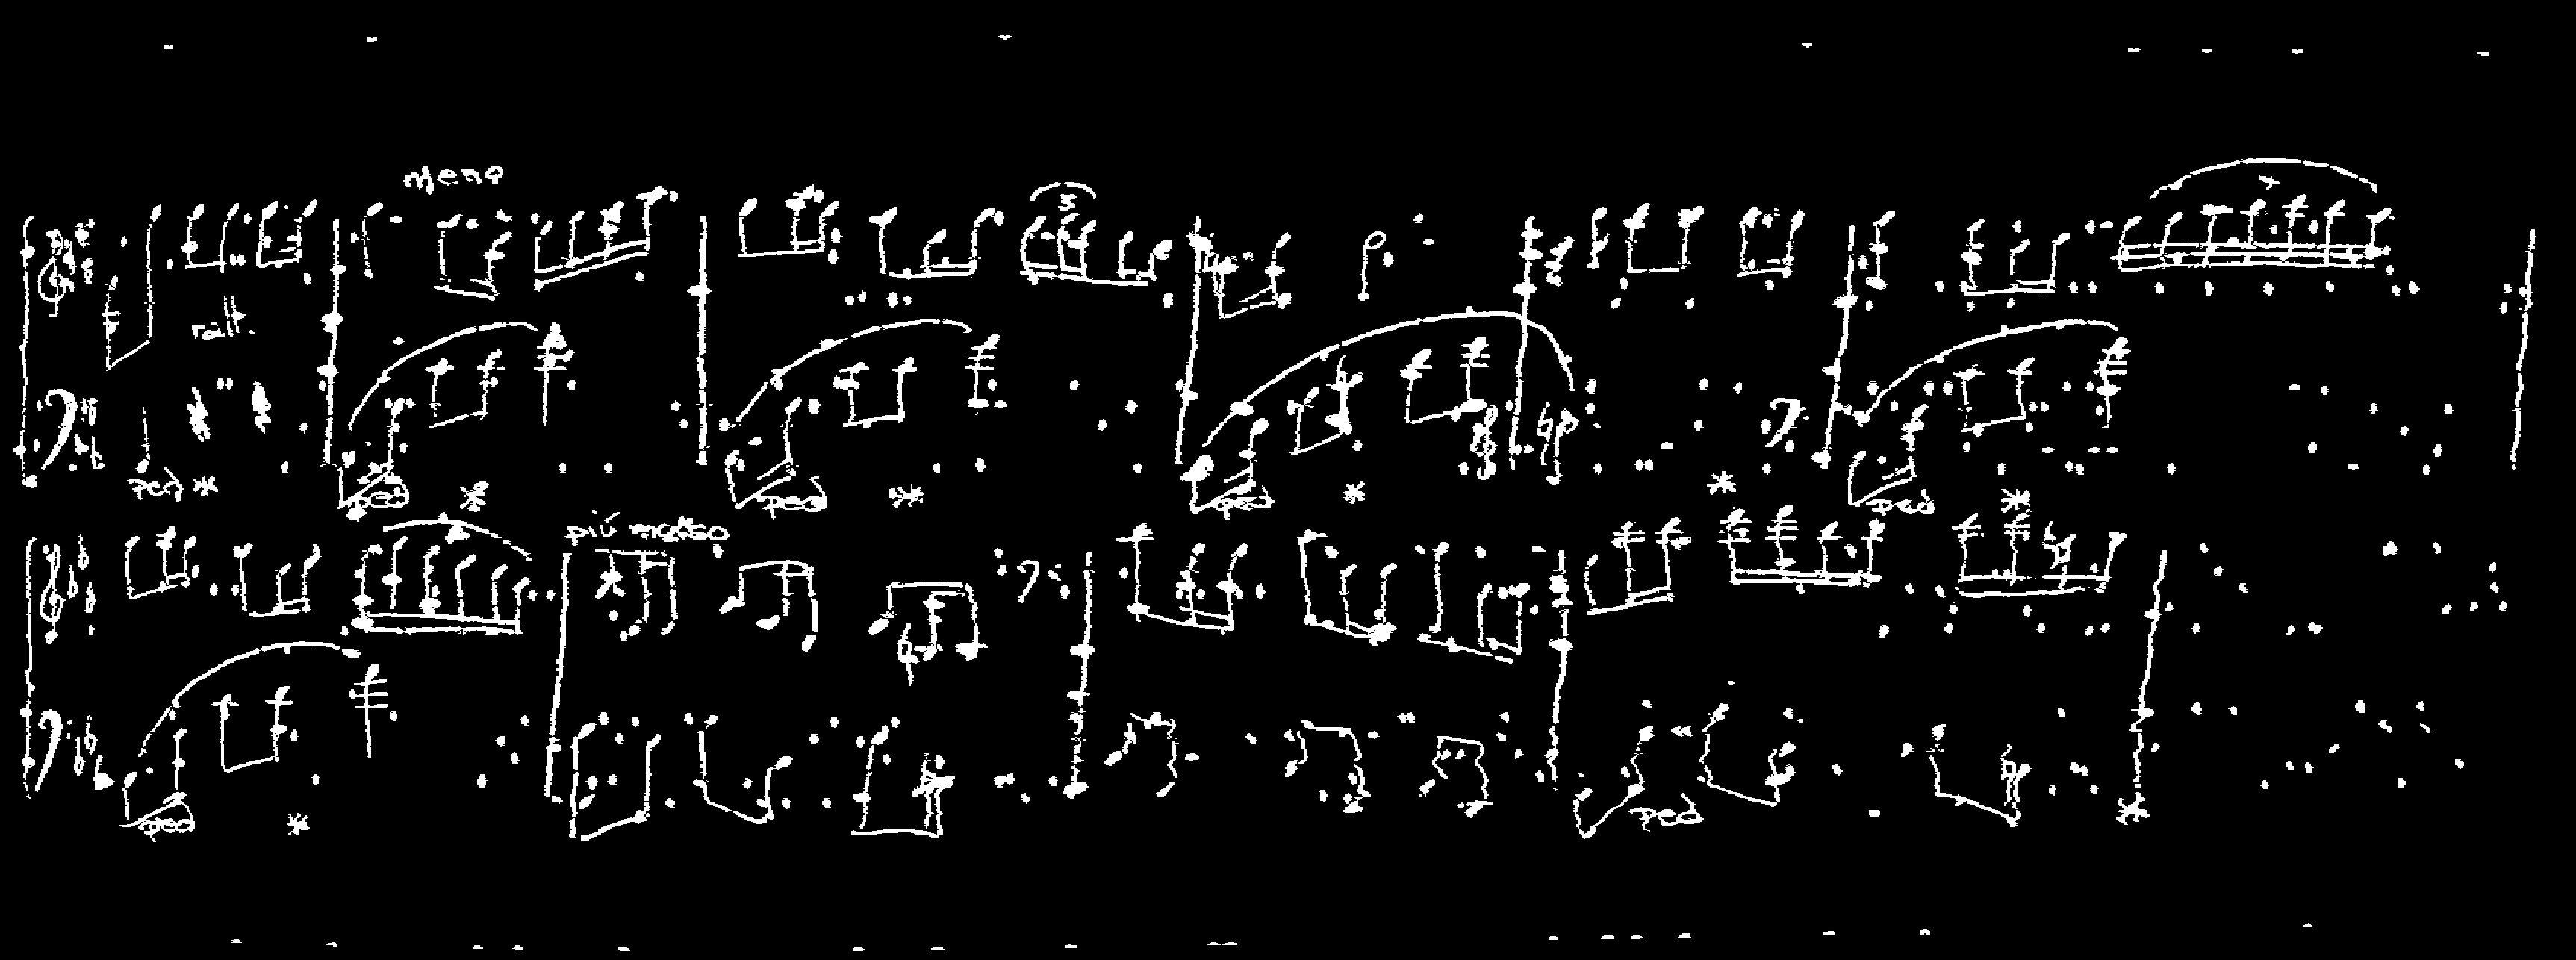 meno
3
7
rall.
Ped * Ped * Ped * Ped * * Ped *
più mosso
Ped * Ped *